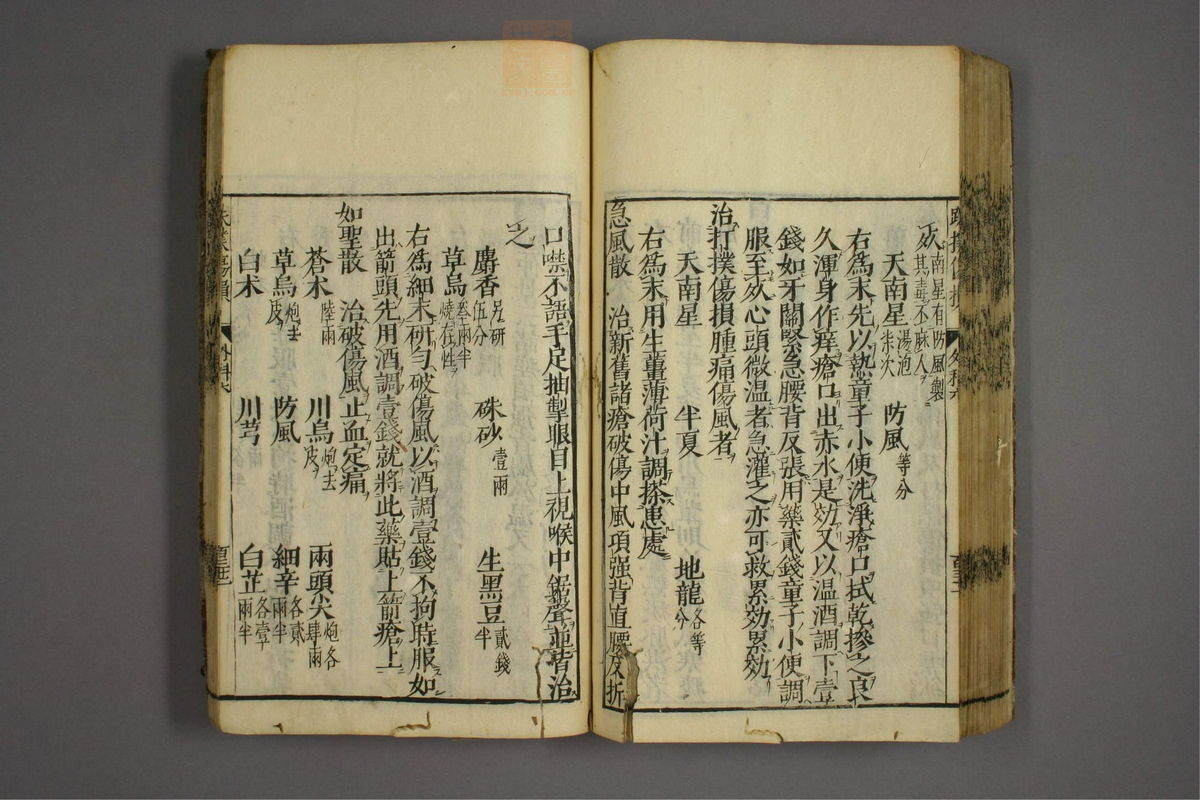 人南星有防風製
其毒不麻人
天南星湯泡柒次 防風等分
右爲末先以熱童子小便洗淨瘡口拭乾摻之良
久渾身作痒瘡口出赤水是効又以温酒調下壹
錢如牙關緊急腰背反張用藥貳錢童子小便調
服至死心頭微温者急灌之亦可救累効累効
治打撲傷損腫痛傷風者
天南星 半夏 地龍各等分
右爲末用生薑薄荷汁調搽患處
急風散 治新舊諸瘡破傷中風項强背直腰反折
口噤不語手足抽掣眼目上視喉中鋸聲並皆治
之
麝香另研伍分 硃砂壹兩 生黑豆貳錢半
草烏叁兩半燒存性
右爲細末研勻破傷風以酒調壹錢不拘時服如
出箭頭先用酒調壹錢就將此藥貼上箭瘡上
如聖散 治破傷風止血定痛
蒼朮陸兩 川烏炮去皮 兩頭尖炮各肆兩
草烏炮去皮 防風 細辛各貳兩半
白朮 川芎 白芷各壹兩半